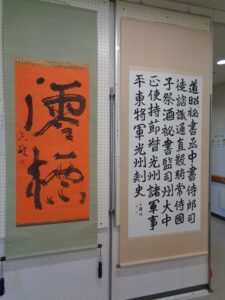 道昭秘書丞中書侍郎司
徒諮議通直散騎常侍國
子祭酒秘書監司州大中
正使持節督光州諸軍事
平東將軍光州刺史
澪標